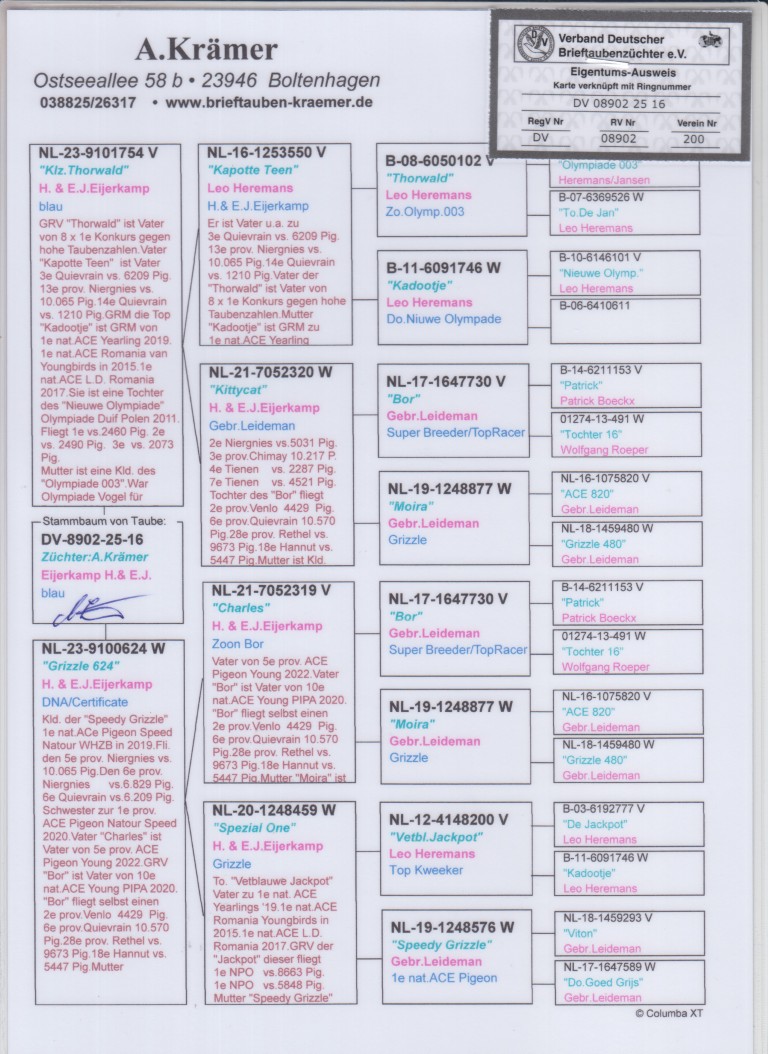 A.Krämer
Ostseeallee 58 b • 23946 Boltenhagen
038825/26317 • www.brieftauben-kraemer.de
Verband Deutscher
Brieftaubenzüchter e.V.
Eigentums-Ausweis
Karte verknüpft mit Ringnummer
DV 08902 25 16
RegV Nr RV Nr Verein Nr
DV 08902 200
NL-23-9101754 V
"Klz.Thorwald"
H. & E.J.Eijerkamp
blau
GRV "Thorwald" ist Vater
von 8 x 1e Konkurs gegen
hohe Taubenzahlen.Vater
"Kapotte Teen" ist Vater
3e Quievrain vs. 6209 Pig.
13e prov. Niergnies vs.
10.065 Pig.14e Quievrain
vs. 1210 Pig.GRM die Top
"Kadootje" ist GRM von
1e nat.ACE Yearling 2019.
1e nat.ACE Romania van
Youngbirds in 2015.1e
nat.ACE L.D. Romania
2017.Sie ist eine Tochter
des "Nieuwe Olympiade"
Olympiade Duif Polen 2011.
Fliegt 1e vs.2460 Pig. 2e
vs. 2490 Pig. 3e vs. 2073
Pig.
Mutter ist eine Kld. des
"Olympiade 003".War
Olympiade Vogel für
Stammbaum von Taube:
DV-8902-25-16
Züchter:A.Krämer
Eijerkamp H.& E.J.
blau
NL-23-9100624 W
"Grizzle 624"
H. & E.J.Eijerkamp
DNA/Certificate
Kld. der "Speedy Grizzle"
1e nat.ACe Pigeon Speed
Natour WHZB in 2019.Fli.
den 5e prov. Niergnies vs.
10.065 Pig.Den 6e prov.
Niergnies vs.6.829 Pig.
6e Quievrain vs.6.209 Pig.
Schwester zur 1e prov.
ACE Pigeon Natour Speed
2020.Vater "Charles" ist
Vater von 5e prov. ACE
Pigeon Young 2022.GRV
"Bor" ist Vater von 10e
nat.ACE Young PIPA 2020.
"Bor" fliegt selbst einen
2e prov.Venlo 4429 Pig.
6e prov.Quievrain 10.570
Pig.28e prov. Rethel vs.
9673 Pig.18e Hannut vs.
5447 Pig.Mutter
NL-16-1253550 V
"Kapotte Teen"
Leo Heremans
H.& E.J.Eijerkamp
Er ist Vater u.a. zu
3e Quievrain vs. 6209 Pig.
13e prov. Niergnies vs.
10.065 Pig.14e Quievrain
vs. 1210 Pig.Vater der
"Thorwald" ist Vater von
8 x 1e Konkurs gegen hohe
Taubenzahlen.Mutter
"Kadootje" ist GRM zu
1e nat.ACE Yearling
NL-21-7052320 W
"Kittycat"
H. & E.J.Eijerkamp
Gebr.Leideman
2e Niergnies vs.5031 Pig.
3e prov.Chimay 10.217 P.
4e Tienen vs. 2287 Pig.
7e Tienen vs. 4521 Pig.
Tochter des "Bor" fliegt
2e prov.Venlo 4429 Pig.
6e prov.Quievrain 10.570
Pig.28e prov. Rethel vs.
9673 Pig.18e Hannut vs.
5447 Pig.Mutter ist Kld.
NL-21-7052319 V
"Charles"
H. & E.J.Eijerkamp
Zoon Bor
Vater von 5e prov. ACE
Pigeon Young 2022.Vater
"Bor" ist Vater von 10e
nat.ACE Young PIPA 2020.
"Bor" fliegt selbst einen
2e prov.Venlo 4429 Pig.
6e prov.Quievrain 10.570
Pig.28e prov. Rethel vs.
9673 Pig.18e Hannut vs.
5447 Pig.Mutter "Moira" ist
NL-20-1248459 W
"Spezial One"
H. & E.J.Eijerkamp
Grizzle
To. "Vetblauwe Jackpot"
Vater zu 1e nat. ACE
Yearlings '19.1e nat.ACE
Romania Youngbirds in
2015.1e nat.ACE L.D.
Romania 2017.GRV der
"Jackpot" dieser fliegt
1e NPO vs.8663 Pig.
1e NPO vs.5848 Pig.
Mutter "Speedy Grizzle"
B-08-6050102 V
"Thorwald"
Leo Heremans
Zo.Olymp.003
B-11-6091746 W
"Kadootje"
Leo Heremans
Do.Niuwe Olympade
NL-17-1647730 V
"Bor"
Gebr.Leideman
Super Breeder/TopRacer
NL-19-1248877 W
"Moira"
Gebr.Leideman
Grizzle
NL-17-1647730 V
"Bor"
Gebr.Leideman
Super Breeder/TopRacer
NL-19-1248877 W
"Moira"
Gebr.Leideman
Grizzle
NL-12-4148200 V
"Vetbl.Jackpot"
Leo Heremans
Top Kweeker
NL-19-1248576 W
"Speedy Grizzle"
Gebr.Leideman
1e nat.ACE Pigeon
"Olympiade 003"
Heremans/Jansen
B-07-6369526 W
"To.De Jan"
Leo Heremans
B-10-6146101 V
"Nieuwe Olymp."
Leo Heremans
B-06-6410611
B-14-6211153 V
"Patrick"
Patrick Boeckx
01274-13-491 W
"Tochter 16"
Wolfgang Roeper
NL-16-1075820 V
"ACE 820"
Gebr.Leideman
NL-18-1459480 W
"Grizzle 480"
Gebr.Leideman
B-14-6211153 V
"Patrick"
Patrick Boeckx
01274-13-491 W
"Tochter 16"
Wolfgang Roeper
NL-16-1075820 V
"ACE 820"
Gebr.Leideman
NL-18-1459480 W
"Grizzle 480"
Gebr.Leideman
B-03-6192777 V
"De Jackpot"
Leo Heremans
B-11-6091746 W
"Kadootje"
Leo Heremans
NL-18-1459293 V
"Viton"
Gebr.Leideman
NL-17-1647589 W
"Do.Goed Grijs"
Gebr.Leideman
© Columba XT